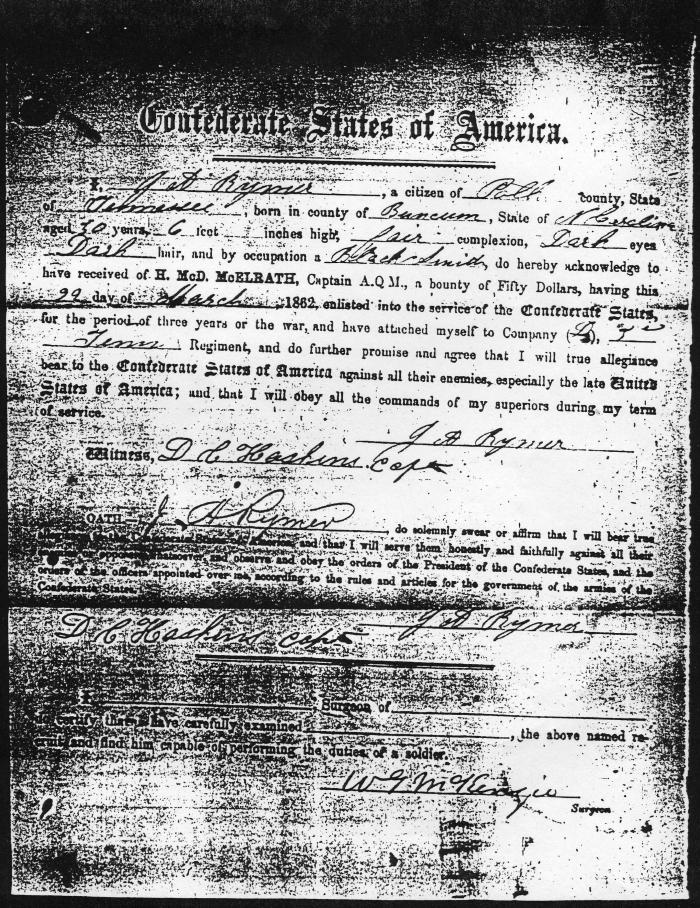 Confederate States of America.
I, J A Rymer, a citizen of Polk county, State
of Tennessee, born in county of Buncum, State of N Carolina
aged 30 years, 6 feet inches high, fair complexion, Dark eyes
Dark hair, and by occupation a Black Smith, do hereby acknowledge to
have received of H. McD. McELRATH, Captain A.Q.M., a bounty of Fifty Dollars, having this
22 day of March, 1862, enlisted into the service of the Confederate States,
for the period of three years or the war, and have attached myself to Company
Tenn Regiment, and do further promise and agree that I will true allegiance
bear to the Confederate States of America against all their enemies, especially the late United
States of America; and that I will obey all the commands of my superiors during my term
of service.
J A Rymer
Witness, D C Haskins Capt
OATH—J A Rymer do solemnly swear or affirm that I will bear true
and that I will serve them honestly and faithfully against all their
whatsoever, and observe and obey the orders of the President of the Confederate States, and the
orders of the officers appointed over me, according to the rules and articles for the government of the armies of the
Confederate States.
D C Haskins Capt J A Rymer
I, Surgeon of
do certify that I have carefully examined , the above named re-
cruit and find him capable of performing the duties of a soldier.
W G McKenzie
Surgeon